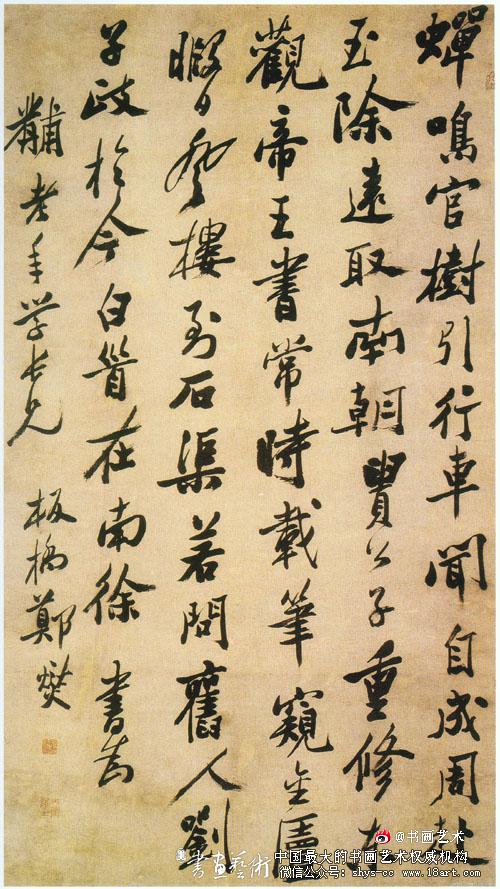 蟬鳴官樹引行車聞自成周赴
玉除遠取南朝貴公子重修東
觀帝王書常時載筆窺金匱
暇日登樓到石渠若問舊人劉
子政於今白首在南徐 書為
黼老年学長兄 板橋鄭燮
@书画艺术
書畫藝術 中国最大的书画艺术权威机构
微信公众号：shys-cc www.18art.com